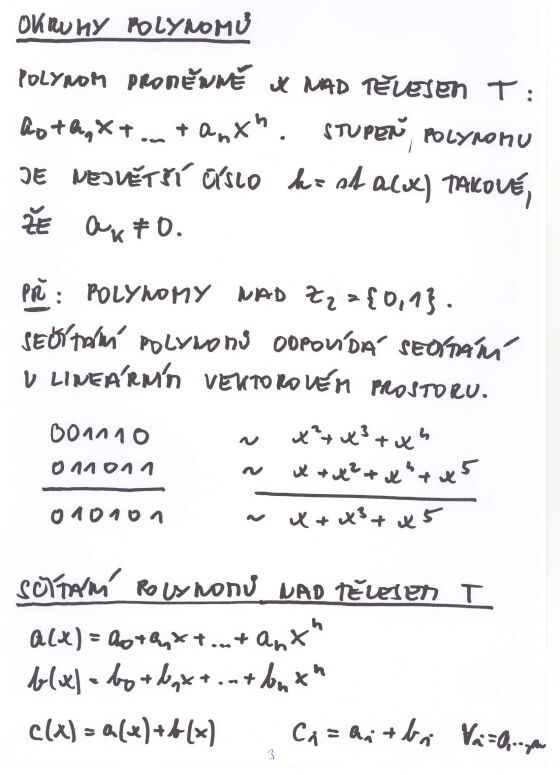 OKRUHY POLYNOMŮ
POLYNOM PROMĚNNÉ x NAD TĚLESEM T:
a₀+a₁x+...+aₙxⁿ. STUPEŇ POLYNOMU
JE NEJVĚTŠÍ ČÍSLO k = st a(x) TAKOVÉ,
ŽE aₖ ≠ 0.
PŘ: POLYNOMY NAD Z₂={0,1}.
SEČÍTÁNÍ POLYNOMŮ ODPOVÍDÁ SEČÍTÁNÍ
V LINEÁRNÍM VEKTOROVÉM PROSTORU.
001110 ~ x²+x³+x⁴
011011 ~ x+x²+x⁴+x⁵
010101 ~ x+x³+x⁵
SČÍTÁNÍ POLYNOMŮ NAD TĚLESEM T
a(x)=a₀+a₁x+...+aₙxⁿ
b(x)=b₀+b₁x+...+bₙxⁿ
c(x)=a(x)+b(x) cᵢ=aᵢ+bᵢ ∀i=0,...,n
3